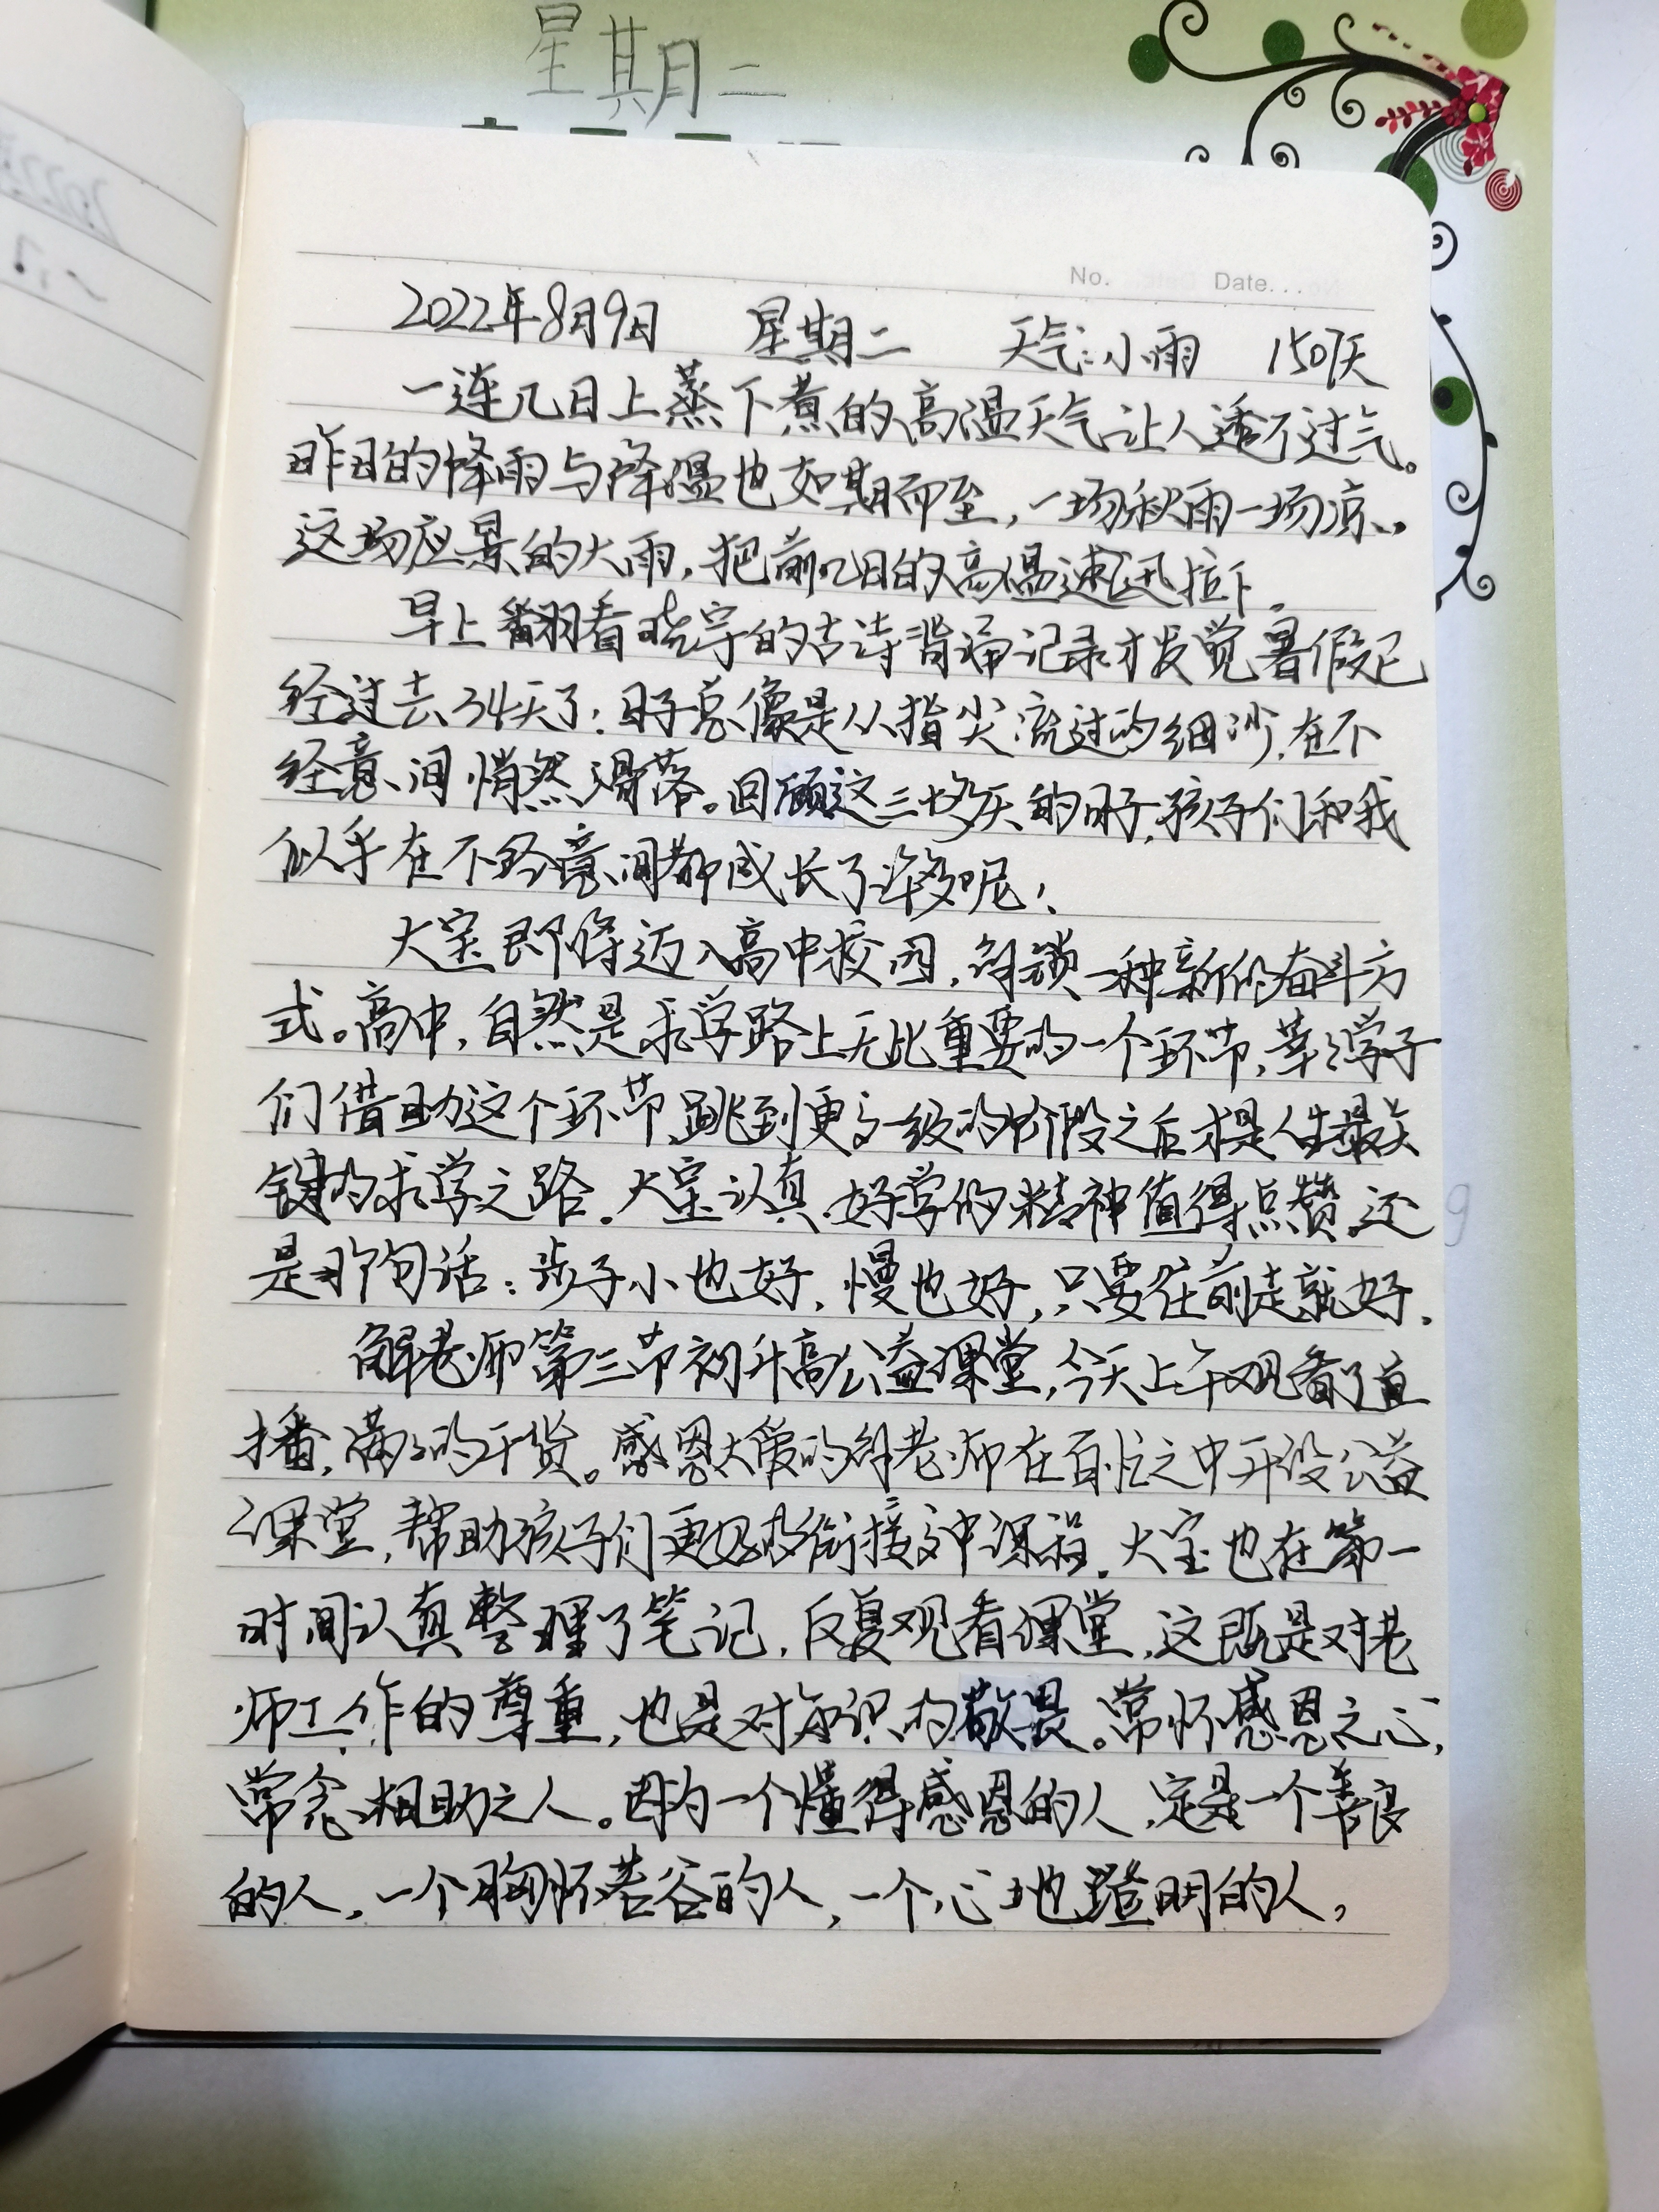 星期二
No. Date...
2022年8月9日 星期二 天气:小雨 150天
一连几日上蒸下煮的高温天气让人透不过气。
昨日的降雨与降温也如期而至,一场秋雨一场凉,
这场应景的大雨,把前几日的高温速迅拉下。
早上翻看晓宇的古诗背诵记录才发觉暑假已
经过去34天了;日子总像是从指尖流过的细沙,在不
经意间悄然滑落。回顾这三十多天的日子,孩子们和我
似乎在不经意间都成长了许多呢!
大宝即将迈入高中校园,解锁一种新的奋斗方
式。高中,自然是求学路上无比重要的一个环节,莘莘学子
们借助这个环节,跳到更高一级的阶段之后才是人生最关
键的求学之路。大宝认真、好学的精神值得点赞,还
是那句话:步子小也好,慢也好,只要往前走就好。
解老师第三节初升高公益课堂,今天上午观看了直
播,满满的干货。感恩大爱的解老师在百忙之中开设公益
课堂,帮助孩子们更好的衔接高中课程。大宝也在第一
时间认真整理了笔记,反复观看课堂,这既是对老
师工作的尊重,也是对知识的敬畏。常怀感恩之心,
常念相助之人。因为一个懂得感恩的人,定是一个善良
的人,一个胸怀若谷的人,一个心地澄明的人,